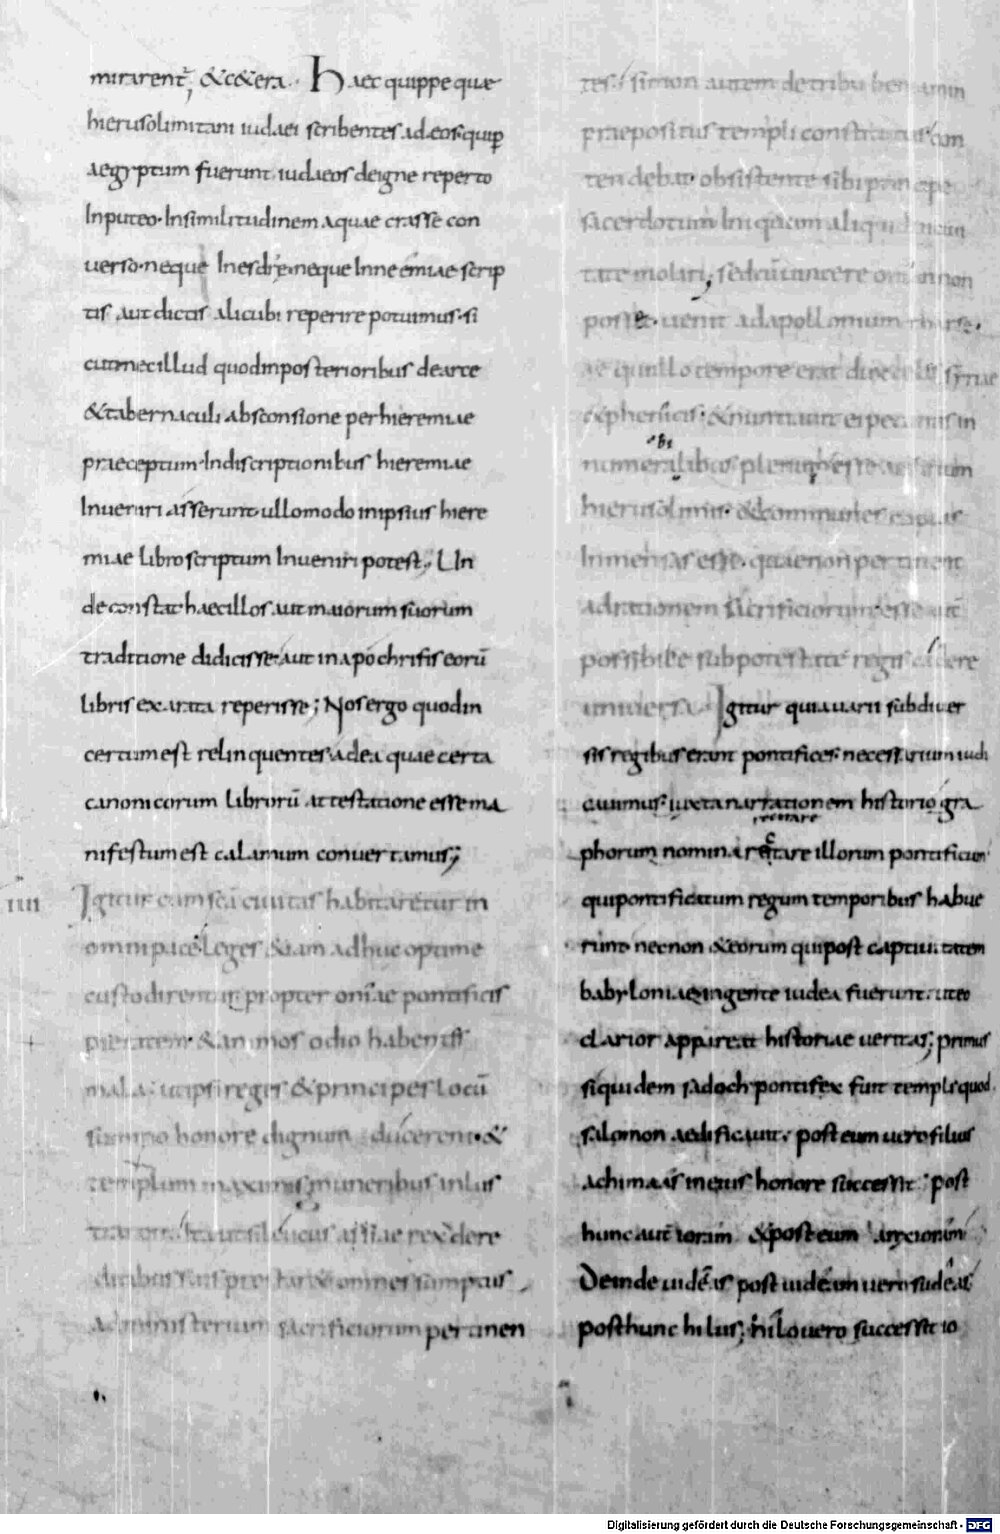 mirarent̄, &c&era. Haec quippe quae
hierusolimitani iudaei scribentes ad eos qui p̄
aegyptum fuerunt iudaeos de igne reperto
In puteo. In similitudinem aquae crasse con
uerso. neque In esdre. neque In neemiae scrip
tis aut dictis alicubi reperire potuimus. si
cut nec illud quod in posterioribus de arce
& tabernaculi absconsione per hieremiae
praeceptum. In discriptionibus hieremiae
Inueniri asserunt. ullo modo in ipsius hiere
miae libro scriptum Inueniri potest; Un
de constat haec illos aut maiorum suorum
traditione didicisse. aut in apochrifis eorū
libris exarata reperisse; Nos ergo quod in
certum est relinquentes ad ea quae certa
canonicorum librorū attestatione esse ma
nifestum est calamum conuertamus;
IIII Igitur cum sc̄a ciuitas habitaretur in
omni pace. Leges &iam adhuc optime
custodirentur. propter oniae pontificis
pietatem. & animos odio habentes
mala. ut ipsi reges & principes locū
summo honore dignum ducerent. &
templum maximis muneribus inlus
trarent. Ita ut sileucus assiae rex dere
ditibus suis prestar& omnes sumptus
Ad ministerium sacrificiorum pertinen
tes; simon autem de tribu beniamin
praepositus templi constitutus con
tendebat. obsistente sibi principe
sacerdotum Iniquum aliquid in ciui
tate moliri; sed cū uincere onian non
posset. uenit ad apollonium tharse.
ae qui illo tempore erat dux celes syriae
& phenicis. & nuntiauit ei pecuniis in
numeralibus plenum esse aerarium
bi
hierusolimis. & communes copias
Inmensas esse. quae non pertinent
ad rationem sacrificiorum. esse autē
possibile sub potestate regis cadere
uniuersa. Igitur quia uarii sub diuer
sis regibus erant pontifices. necessarium iudi
cauimus. iuxta narrationem historiogra
recitare
phorum nomina recitare illorum pontificum
qui pontificatum regum temporibus habue
runt necnon & eorum qui post captiuitatem
babyloniae in gente iudea fuerunt. ut eo
clarior appareat historiae ueritas; primus
siquidem sadoch pontifex fuit templi quod
salomon aedificauit. post eum uero filius
achimaas in eius honore successit; post
hunc aut ioram & post eum
Deinde
post hunc hilus; hilo uero successit io